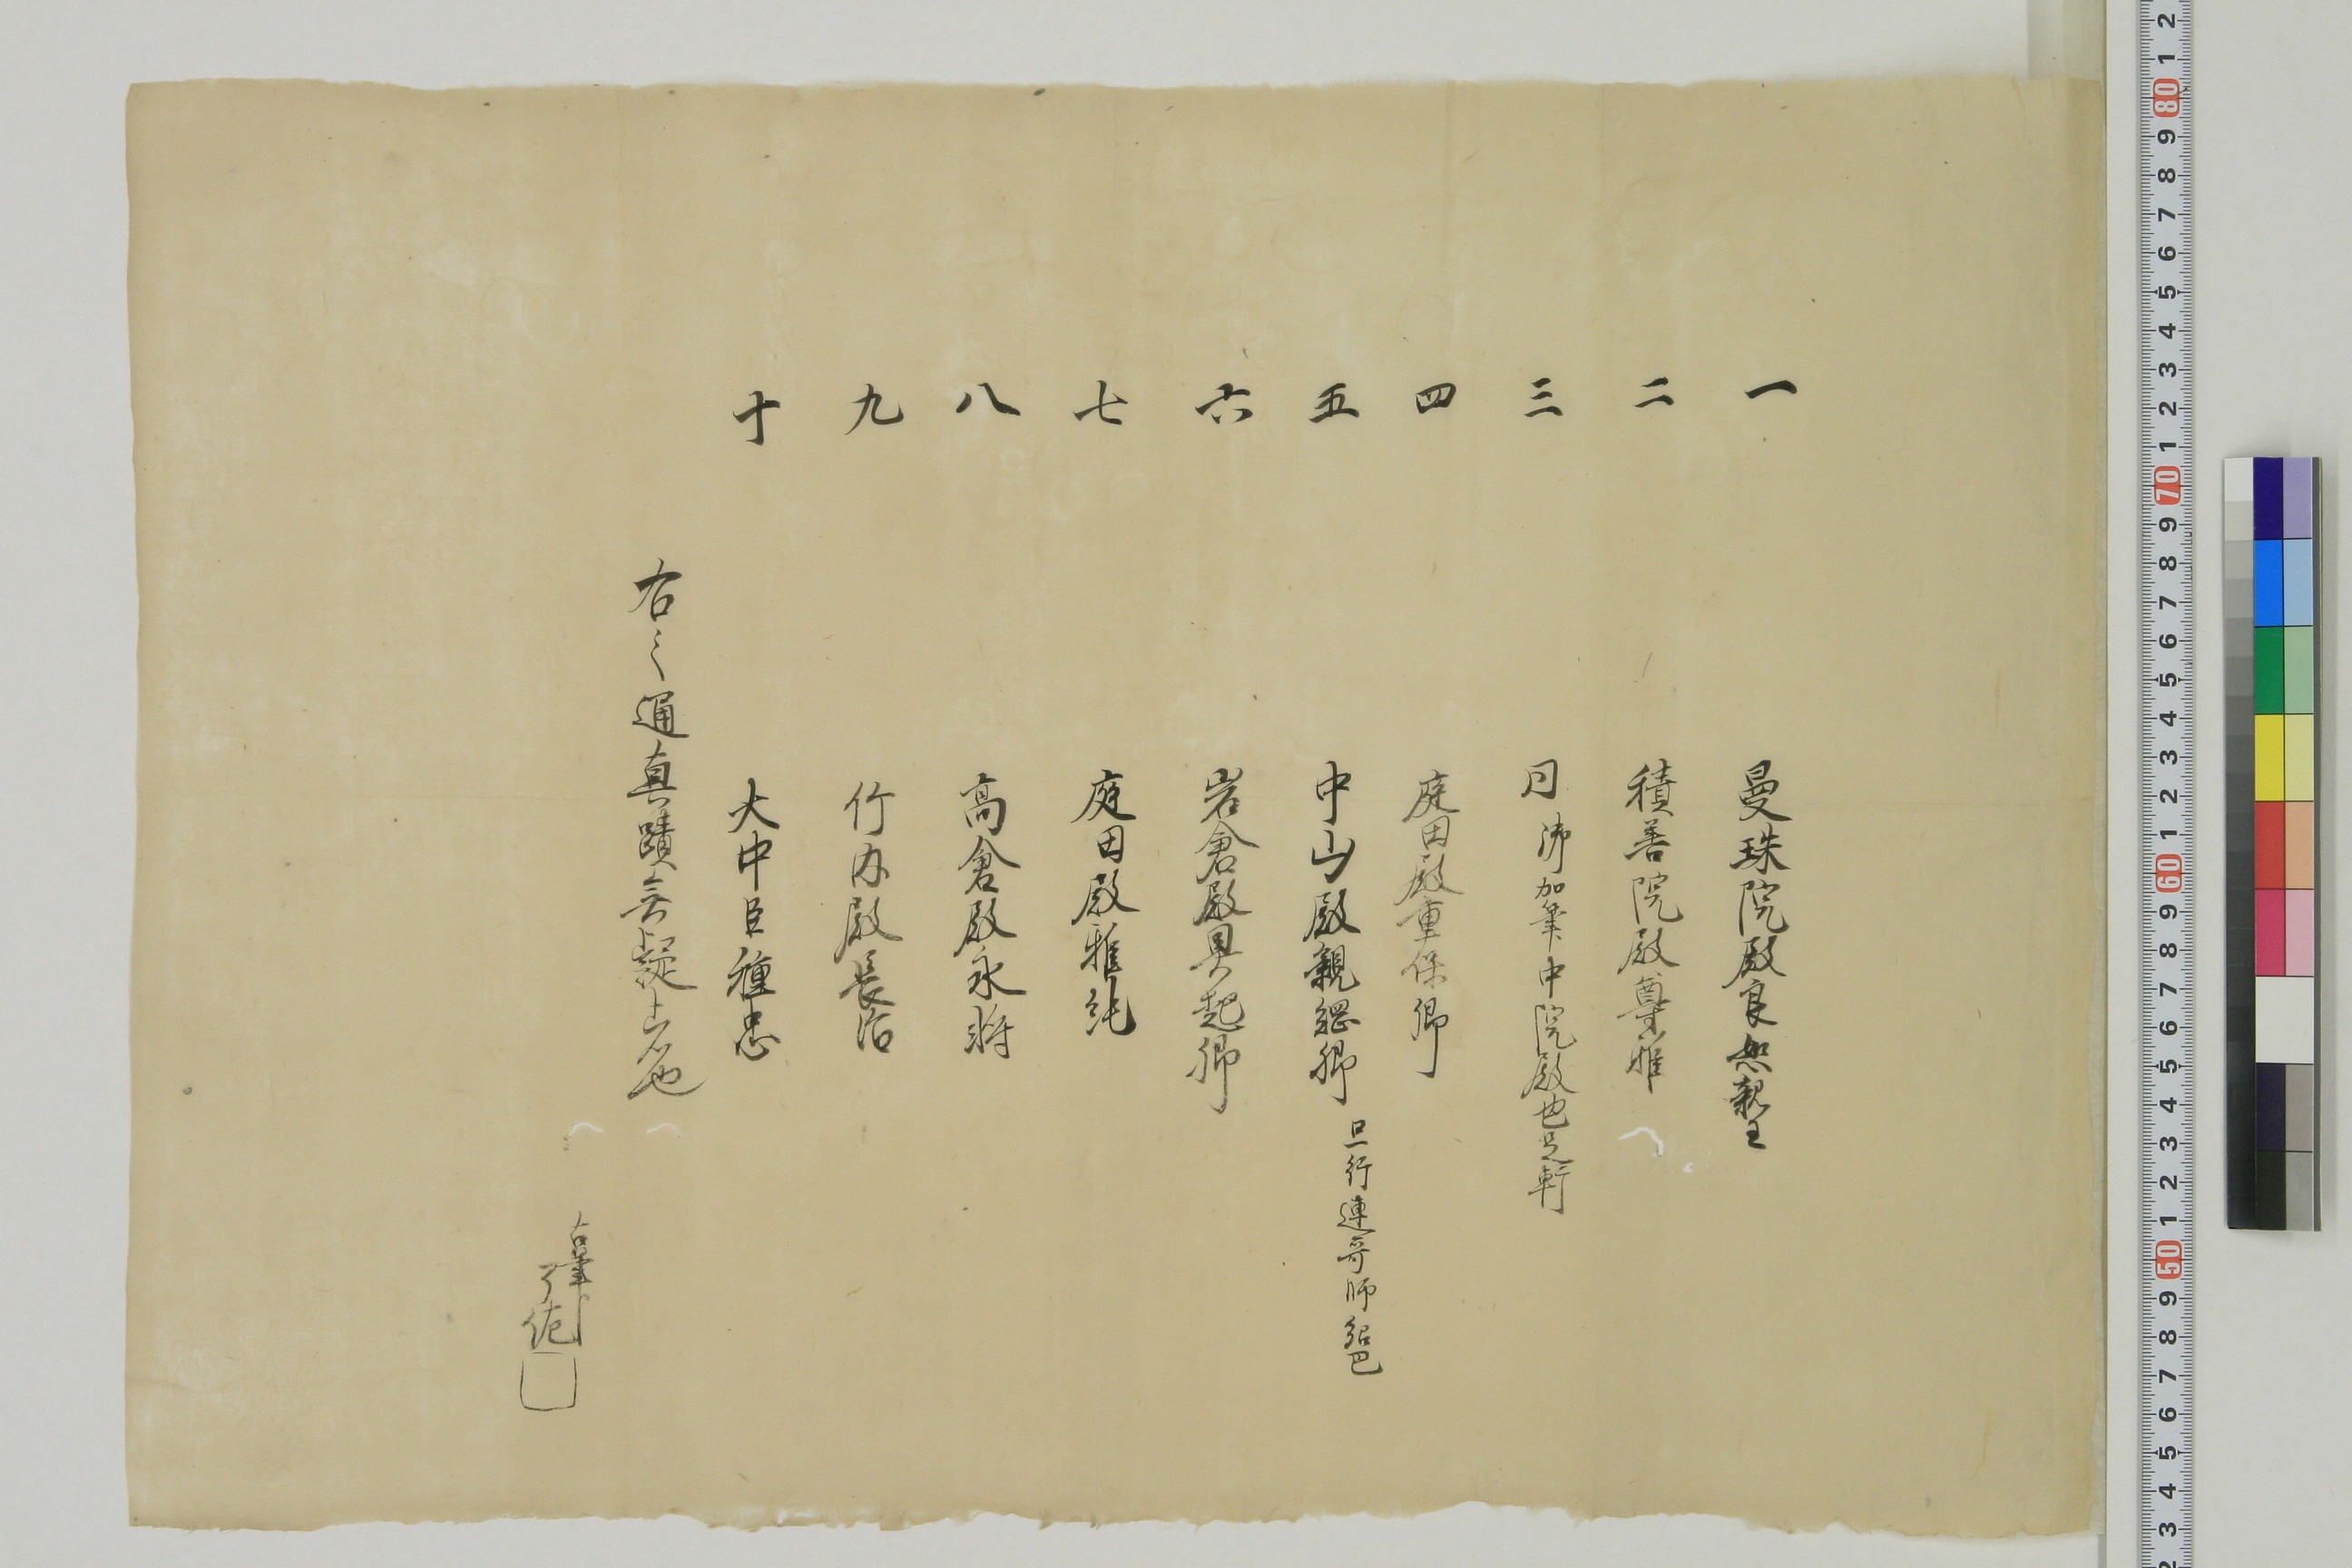 一 曼珠院殿良恕親王
二 積善院殿尊雅
三 同 御加筆中院殿也足軒
四 庭田殿重保卿
五 中山殿親綱卿 行連哥師紹巴
六 岩倉殿具起卿
七 庭田殿雅純
八 高倉殿永将
九 竹内殿長治
十 大中臣種忠
右之通真蹟無疑者也
古筆
了佐